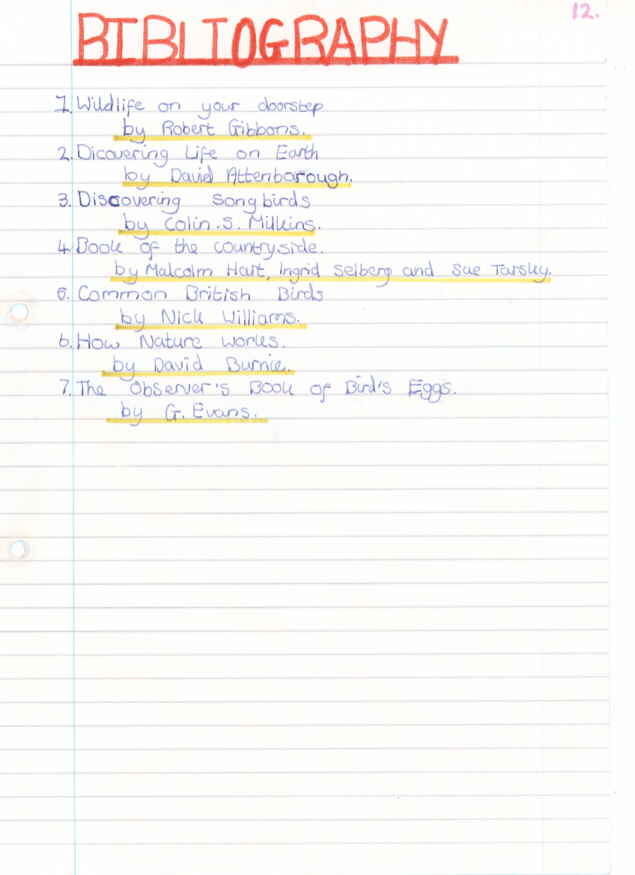 12.
BIBLIOGRAPHY
1. Wildlife on your doorstep
by Robert Gibbons.
2. Dicovering Life on Earth
by David Attenborough.
3. Discovering Songbirds
by Colin. S. Milkins.
4. Book of the countryside.
by Malcolm Hart, Ingrid Selberg and Sue Tarsky.
5. Common British Birds
by Nick Williams.
6. How Nature works.
by David Burnie.
7. The Observer's Book of Bird's Eggs.
by G. Evans.